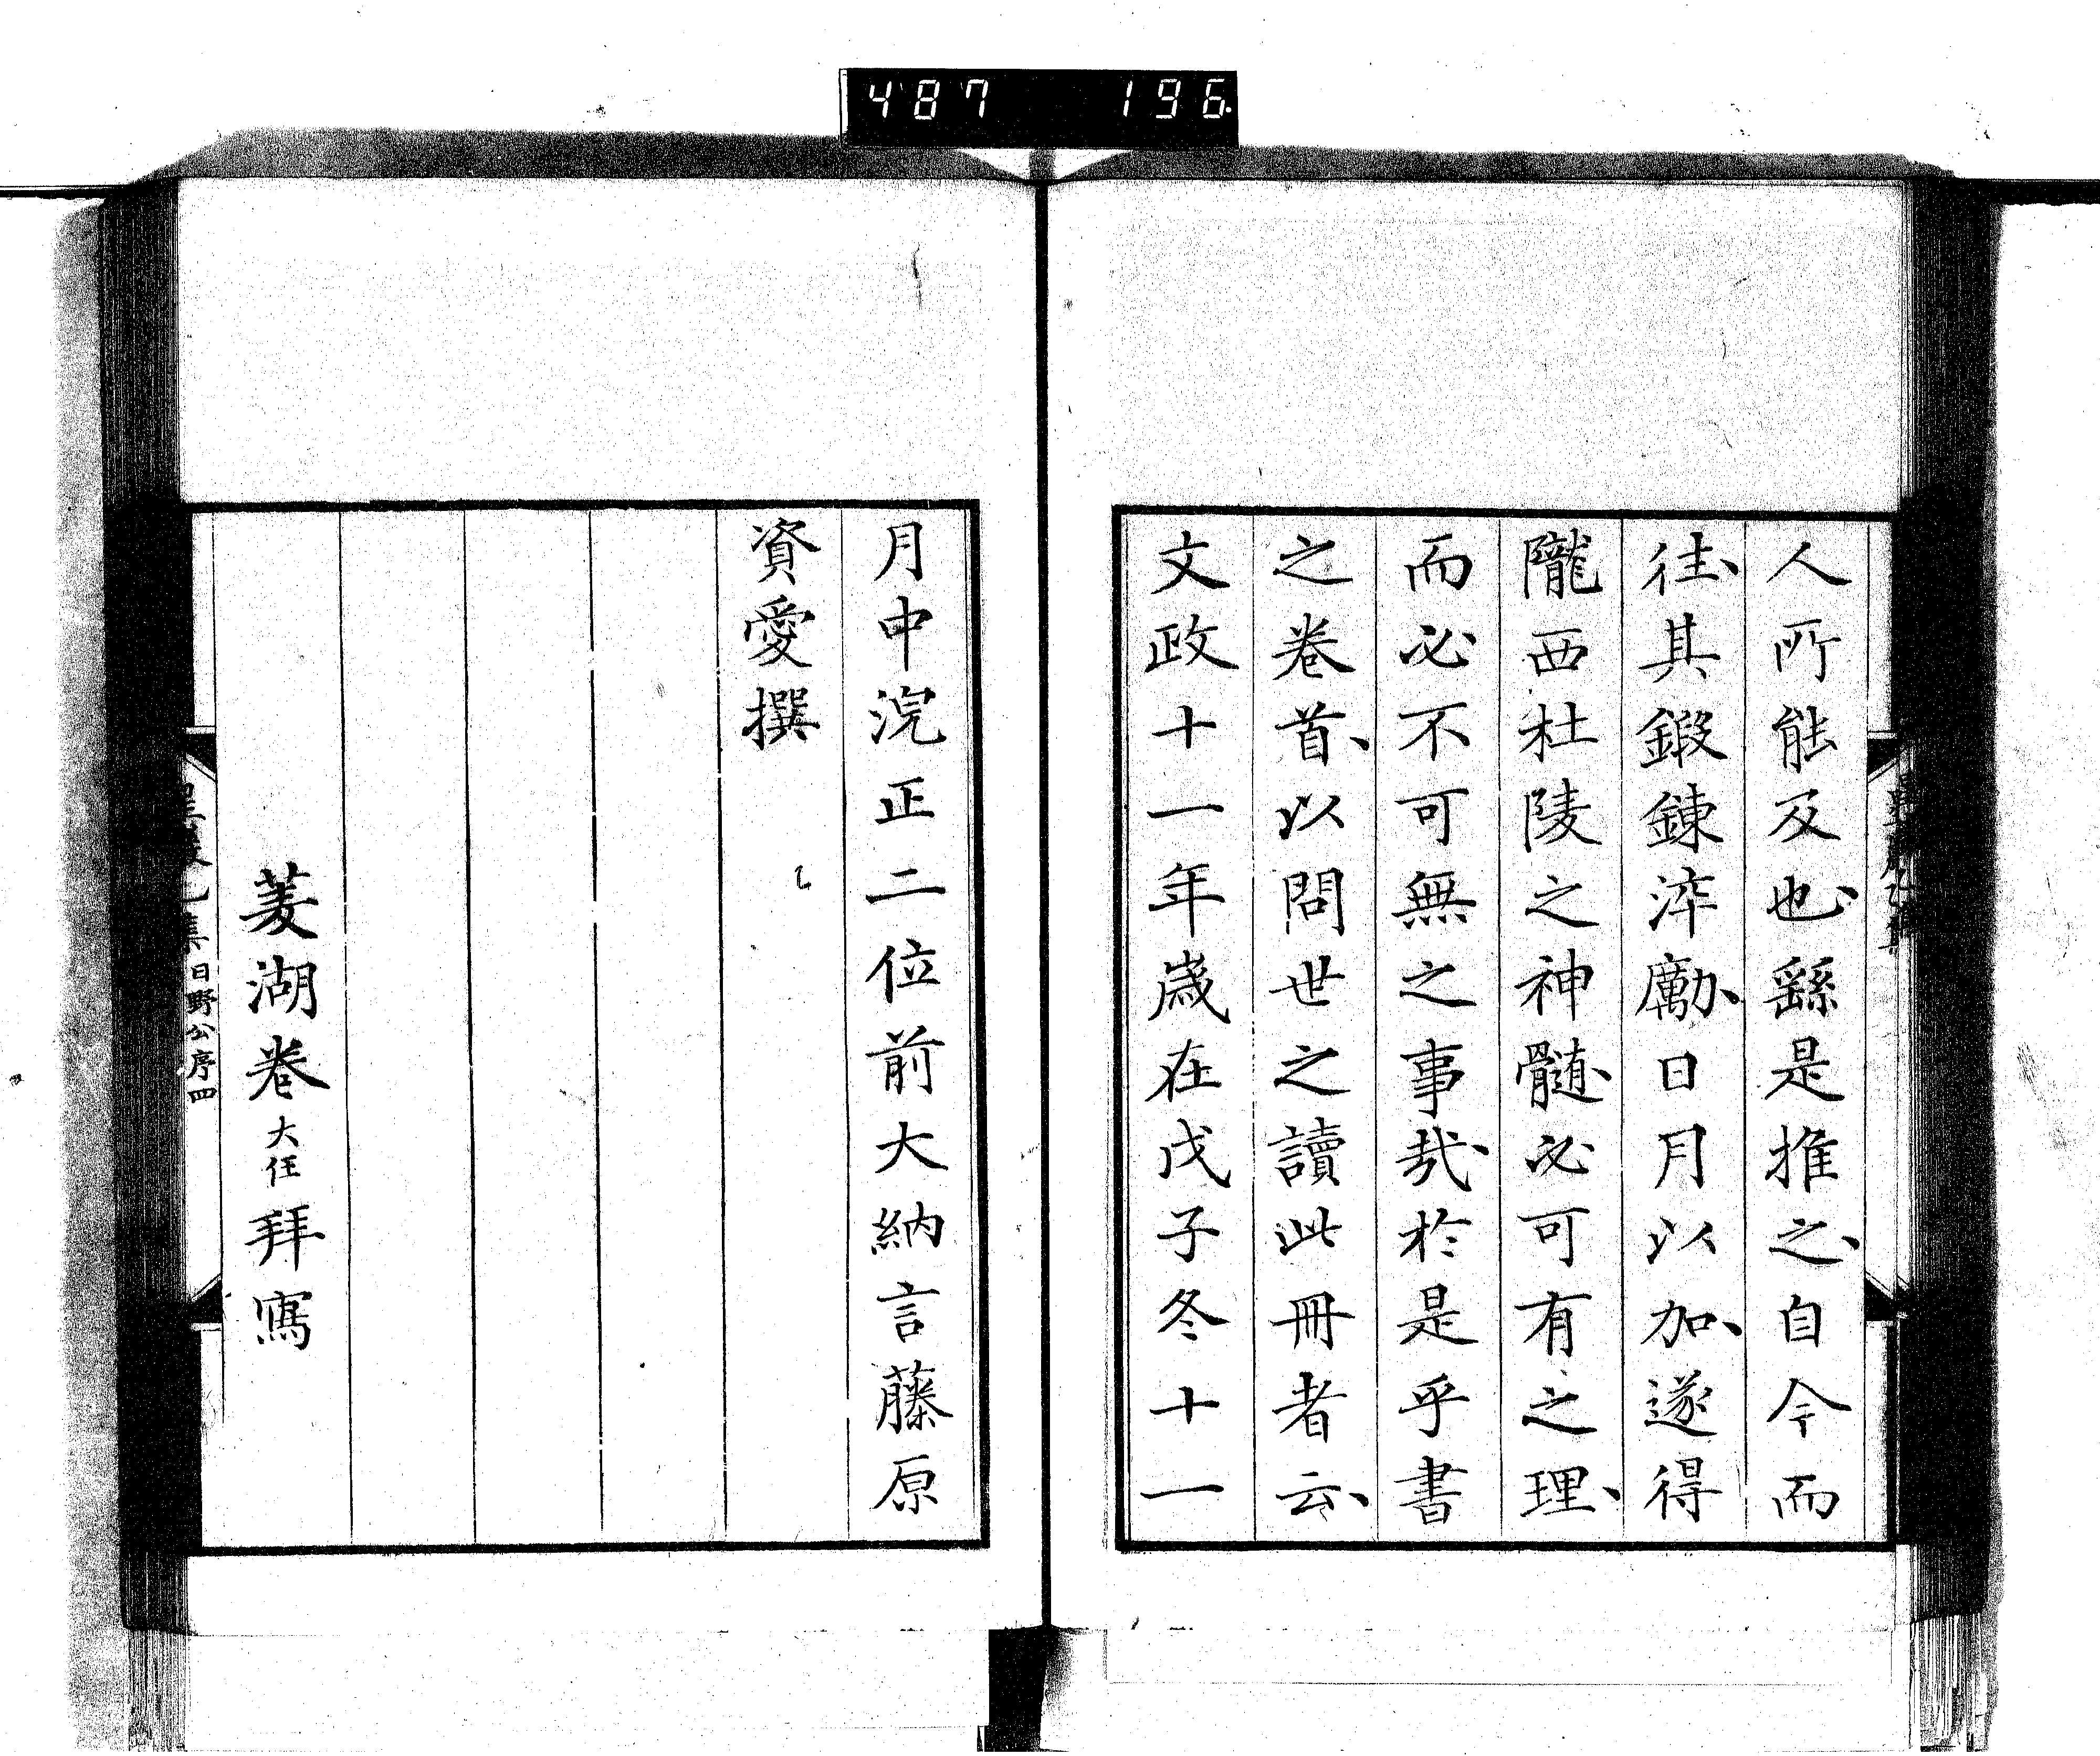 487 196
人所能及也、繇是推之、自今而
往、其鍛鍊淬勵、日月以加、遂得
隴西杜陵之神髓、必可有之理、
而必不可無之事哉、於是乎書
之卷首、以問世之讀此冊者云、
文政十一年歲在戊子冬十一
月中浣正二位前大納言藤原
資愛撰
菱湖卷大任拜寫
集 日野公序 四